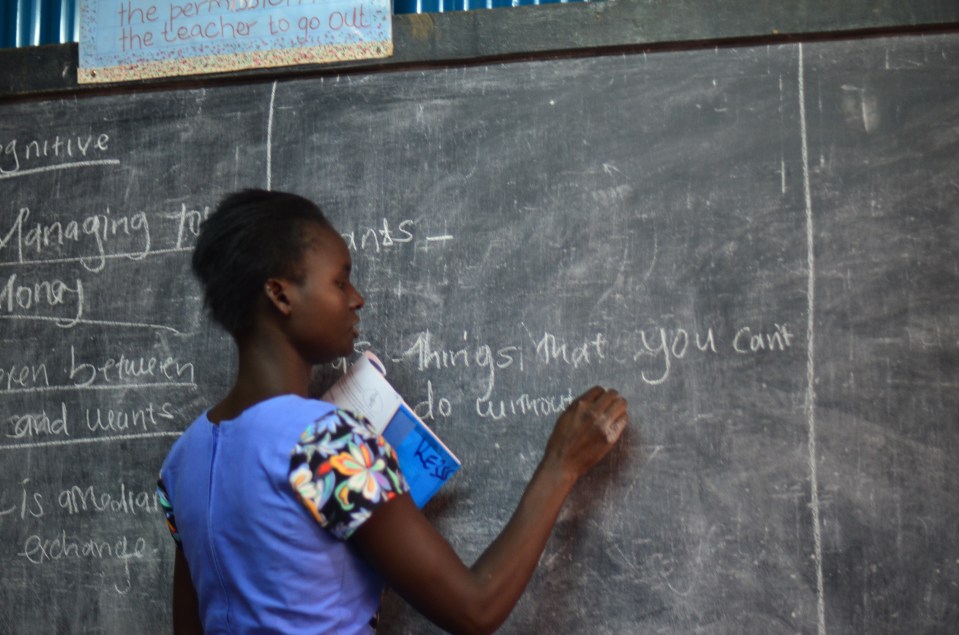 the permission
the teacher to go out
gnitive
Managing
Money
between
and wants
is a median
exchange.
ants –
- things, that you can't
do without